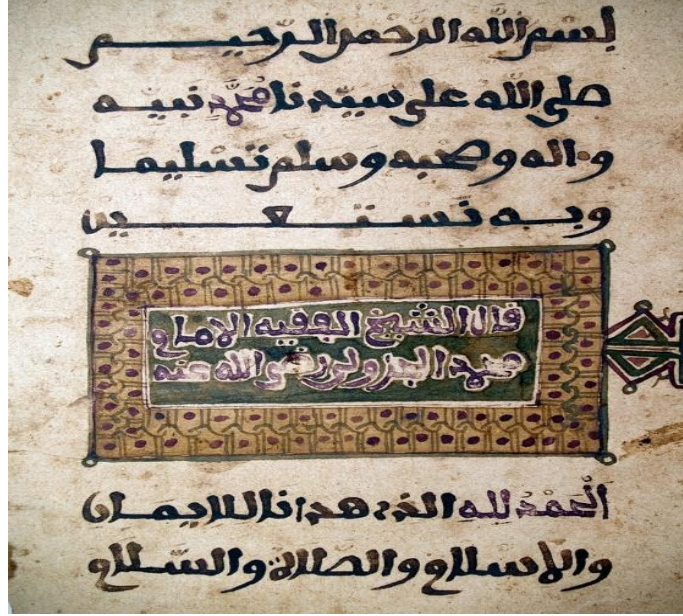 بسم الله الرحمن الرحيم
صلى الله على سيدنا محمد نبيه
واله وصحبه وسلم تسليما
وبه نستعين
قال الشيخ الفقيه الامام
محمد الجزولي رضي الله عنه
الحمد لله الذي هدانا للايمان
والاسلام والصلاة والسلام